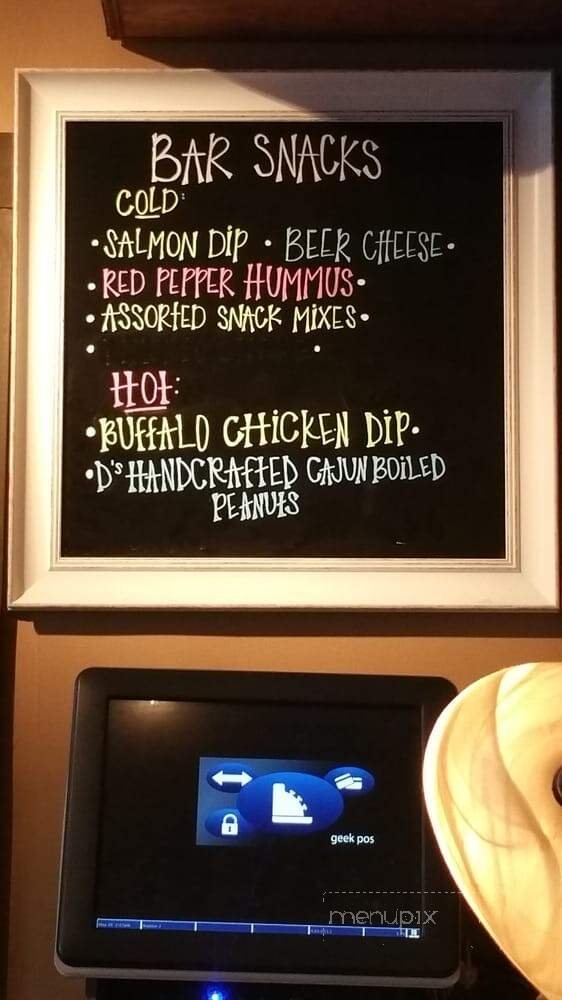 BAR SNACKS
COLD:
• SALMON DIP • BEER CHEESE •
• RED PEPPER HUMMUS •
• ASSORTED SNACK MIXES •
• •
HOT:
• BUFFALO CHICKEN DIP •
• D's HANDCRAFTED CAJUN BOILED
PEANUTS
geek pos
menupix